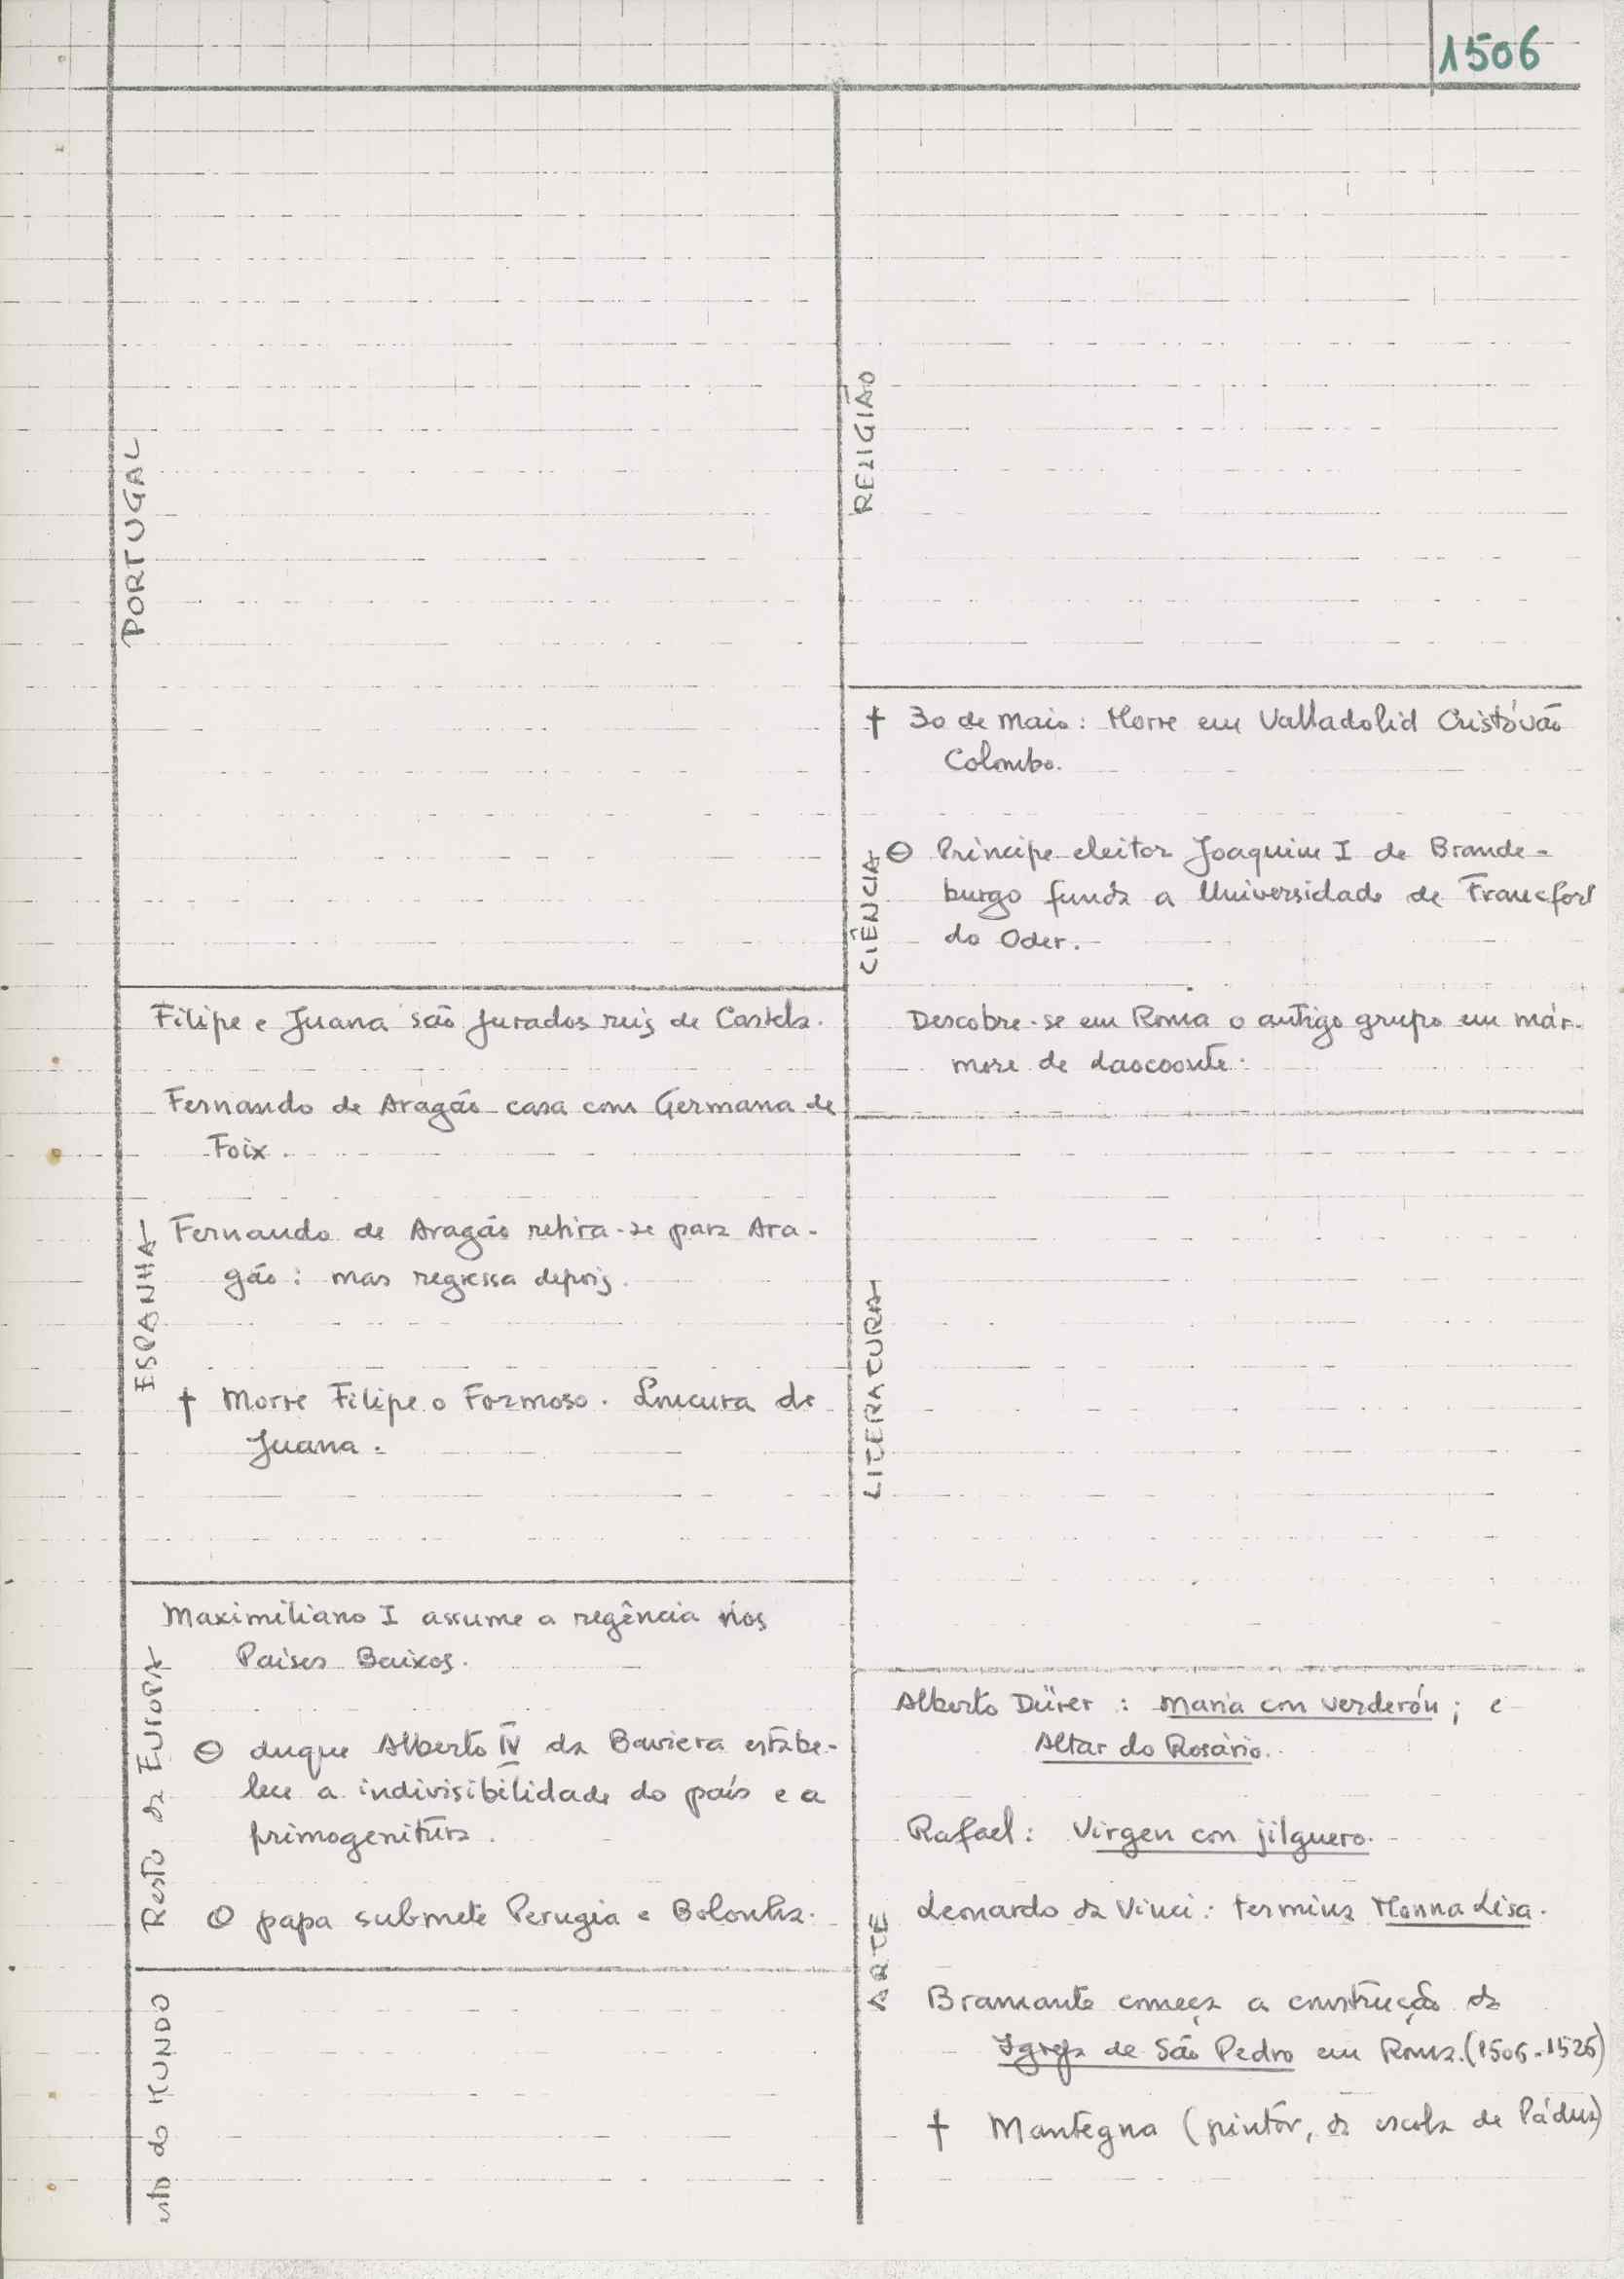 1506
PORTUGAL
ESPANHA
Filipe e Juana são jurados reis de Castela.
Fernando de Aragão casa com Germana de
Foix.
Fernando de Aragão retira-se para Ara-
gão: mas regressa depois.
† Morre Filipe o Formoso. Loucura de
Juana.
Resto da EUROPA
Maximiliano I assume a regência nos
Paises Baixos.
O duque Alberto IV da Baviera estabe-
lece a indivisibilidade do país e a
primogenitura.
O papa submete Perugia e Bolonha.
esto do MUNDO
RELIGIÃO
CIÊNCIA
† 30 de Maio: Morre em Valladolid Cristóvão
Colombo.
O Principe eleitor Joaquim I de Brande-
burgo funda a Universidade de Francfort
do Oder.
Descobre-se em Roma o antigo grupo em már-
more de Laocoonte.
LITERATURA
ARTE
Alberto Dürer : Maria con verderón; e
Altar do Rosário.
Rafael: Virgen con jilguero.
Leonardo da Vinci: termina Monna Lisa.
Bramante começa a construção da
Igreja de São Pedro em Roma. (1506-1526)
† Mantegna (pintor, da escola de Pádua)